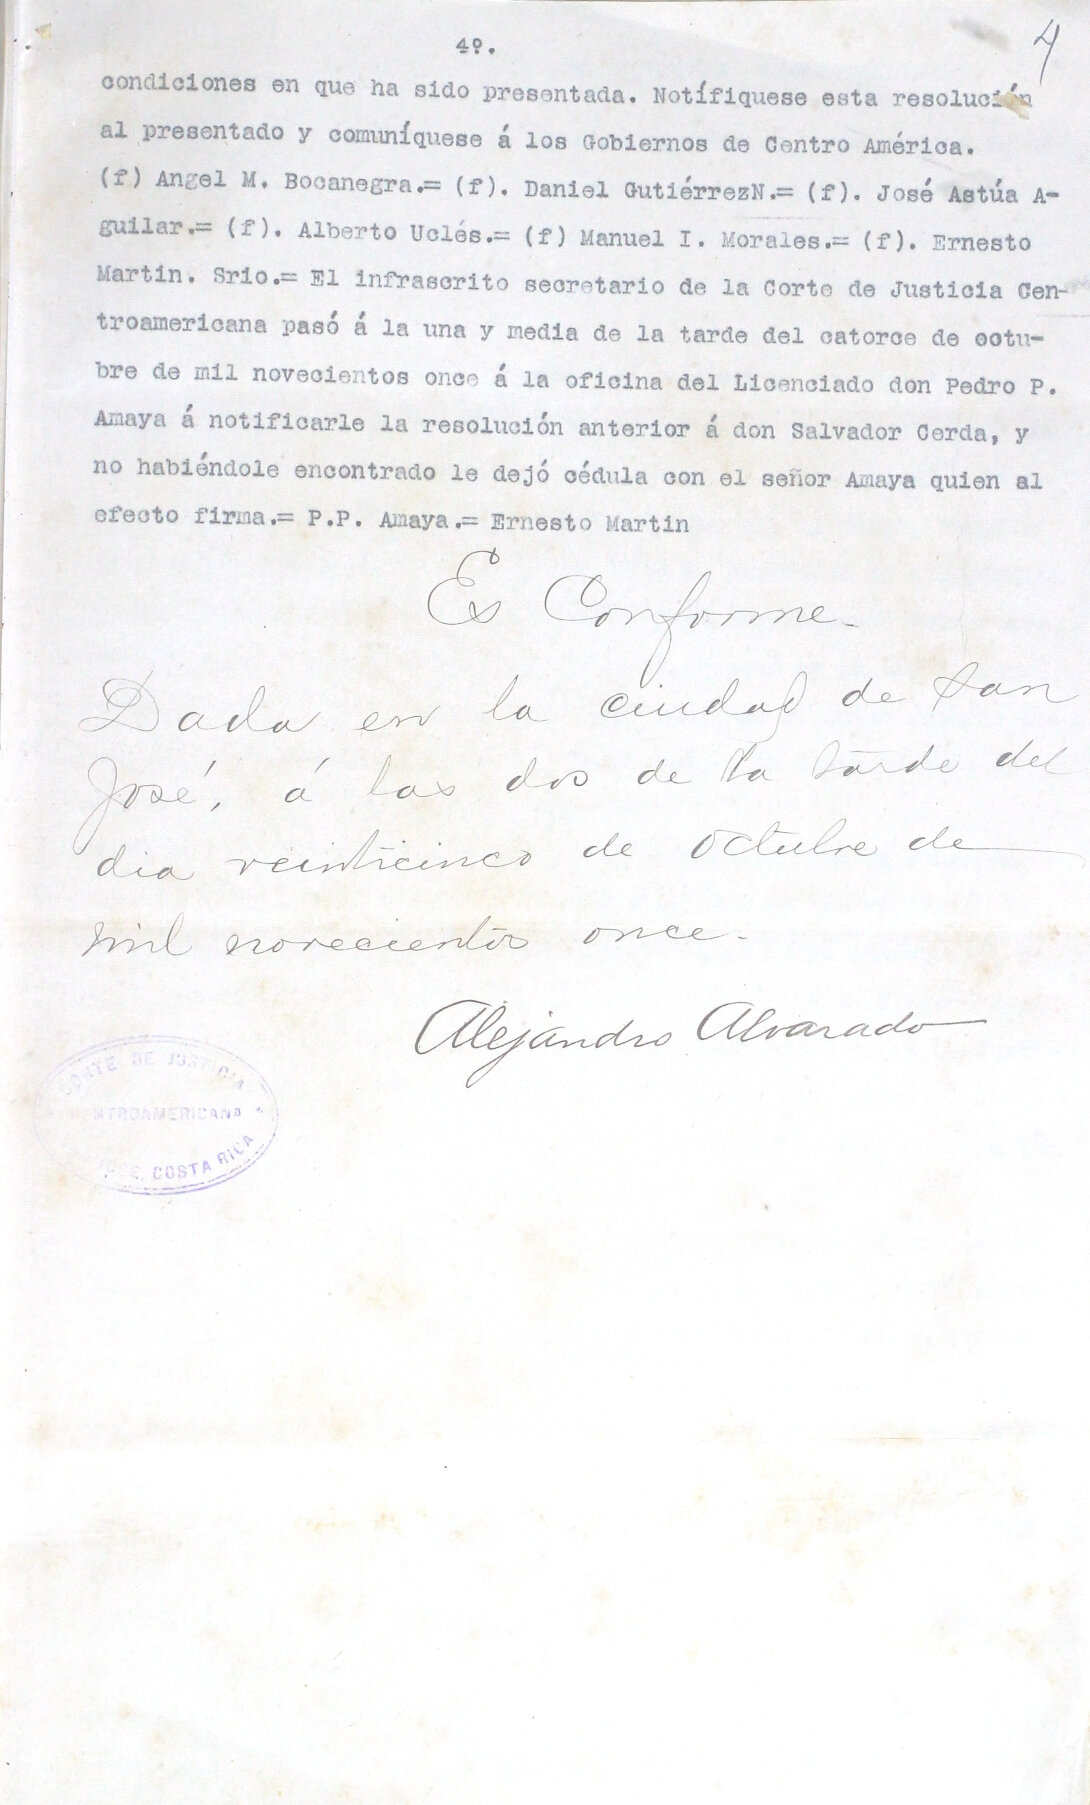 4º.
4
condiciones en que ha sido presentada. Notífiquese esta resolución
al presentado y comuníquese á los Gobiernos de Centro América.
(f) Angel M. Bocanegra.= (f). Daniel GutiérrezN.= (f). José Astúa A-
guilar.= (f). Alberto Uclés.= (f) Manuel I. Morales.= (f). Ernesto
Martin. Srio.= El infrascrito secretario de la Corte de Justicia Cen-
troamericana pasó á la una y media de la tarde del catorce de octu-
bre de mil novecientos once á la oficina del Licenciado don Pedro P.
Amaya á notificarle la resolución anterior á don Salvador Cerda, y
no habiéndole encontrado le dejó cédula con el señor Amaya quien al
efecto firma.= P.P. Amaya.= Ernesto Martin
Es Conforme.
Dada en la ciudad de San
José, á las dos de la tarde del
dia veinticinco de octubre de
mil novecientos once.
Alejandro Alvarado
CORTE DE JUSTICIA
CENTROAMERICANA
COSTA RICA